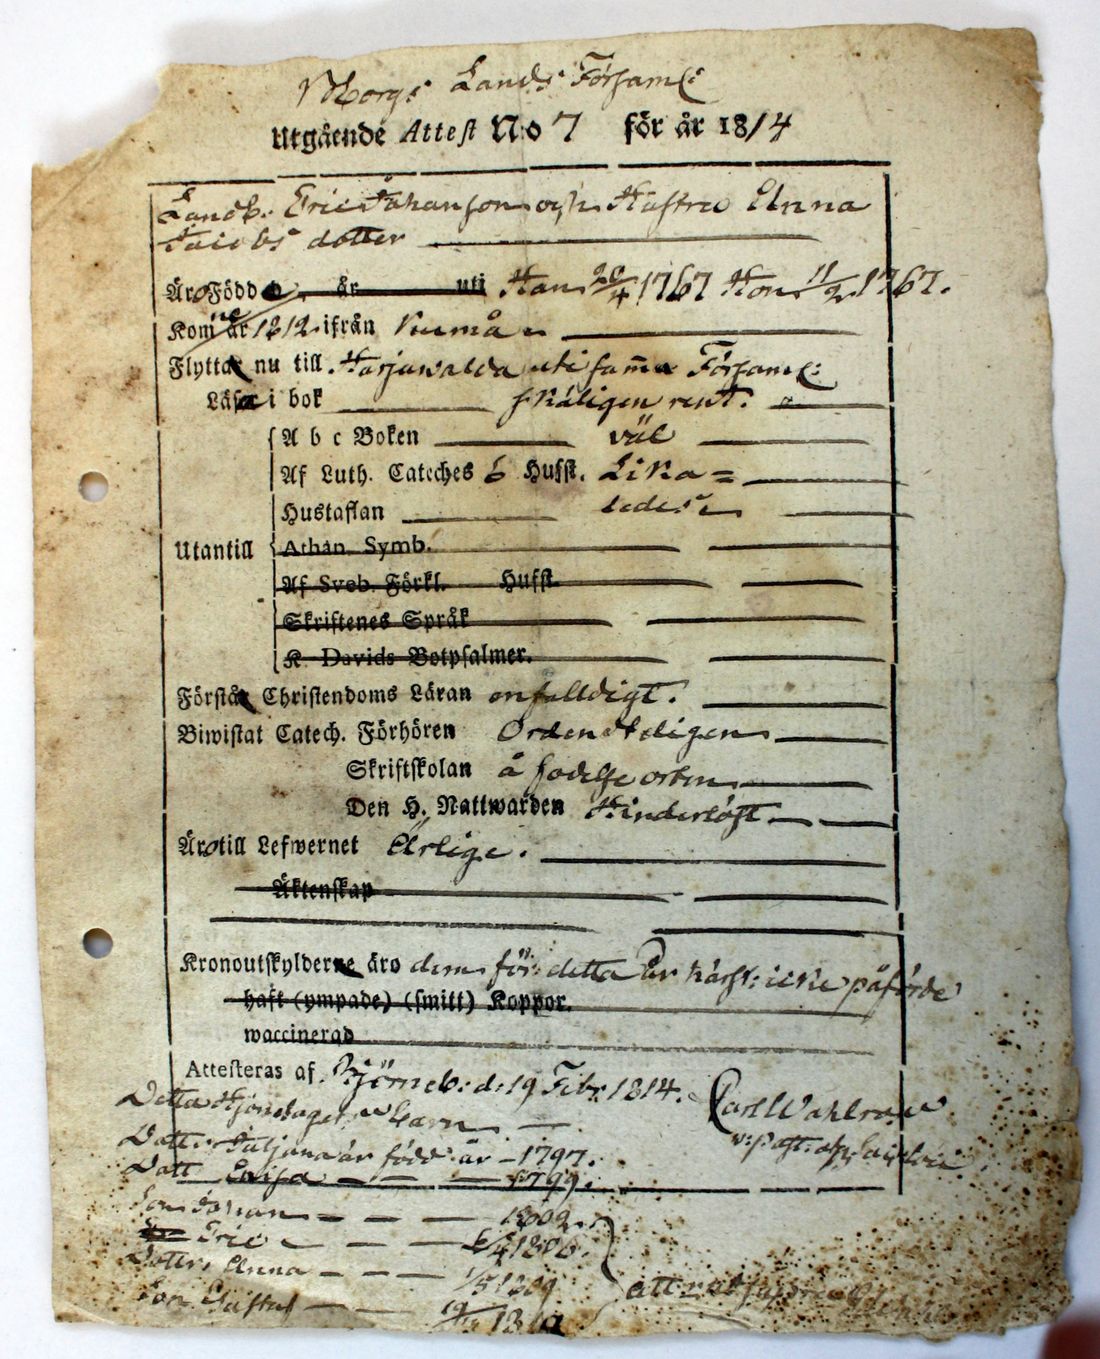 Lands Församl:
Utgående Attest No 7 för år 1814
Landb. Eric Johansson och Hustru Anna
Jacobs dotter
Äro Född år uti Han 20/4 1767 Hon 11/2 1767.
Komne år 1812 ifrån Kumå
Flytta nu till Harjawalda uti samma Församl:
Läsa i bok skäligen rent.
A b c Boken väl
Af Luth. Cateches 6 Hufst. Lika=
Hustaflan ledes
Utantill Athan. Symb.
Af Sveb. Förkl. Hufst.
Skriftenes Språk
K. Davids Botpsalmer.
Förstå Christendoms Läran enfalldigt.
Biwistat Catech. Förhören Ordenteligen
Skriftskolan å födelse orten
Den H. Nattwarden Hinderlöst
Äro till Lefwernet Ärlige.
Äktenskap
Kronoutskylderne äro dem för detta år härst: icke påförde
haft (ympade) (smitt) Koppor.
waccinerad
Attesteras af Björneb: d: 19 Febr. 1814. Carl Wahlroos
Detta Barn
Dotter är född år 1797.
Dott Lovisa 1799.
Son Johan 1802.
Eric 1806.
Dotter Anna 1809
Son Gustaf